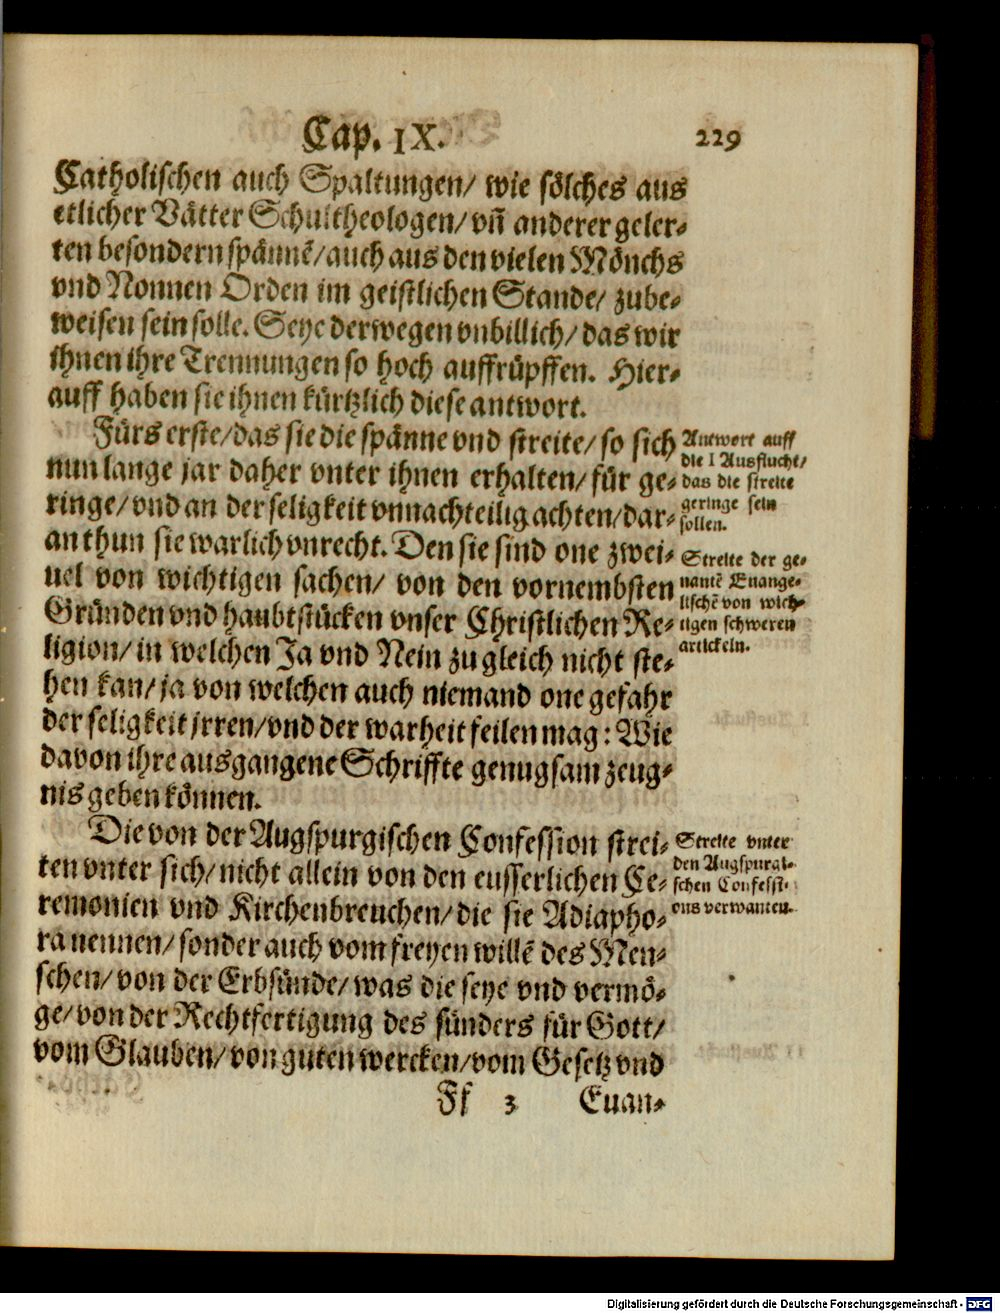 Cap. IX. 229
Catholischen auch Spaltungen/ wie sölches aus
etlicher Vätter Schultheologen/ vñ anderer geler-
ten besondern spännẽ/ auch aus den vielen Mönchs
vnd Nonnen Orden im geistlichen Stande/ zube-
weisen sein solle. Seye derwegen vnbillich/ das wir
ihnen ihre Trennungen so hoch auffrüpffen. Hier-
auff haben sie ihnen kürtzlich diese antwort.
Fürs erste/ das sie die spänne vnd streite/ so sich
nun lange jar daher vnter ihnen erhalten/ für ge-
ringe/ vnd an der seligkeit vnnachteilig achten/ dar-
an thun sie warlich vnrecht. Den sie sind one zwei-
uel von wichtigen sachen/ von den vornembsten
Gründen vnd haubtstücken vnser Christlichen Re-
ligion/ in welchen Ja vnd Nein zugleich nicht ste-
hen kan/ ja von welchen auch niemand one gefahr
der seligkeit jrren/ vnd der warheit feilen mag: Wie
davon ihre ausgangene Schriffte genugsam zeug-
nis geben können.
Die von der Augspurgischen Confession strei-
ten vnter sich/ nicht allein von den eusserlichen Ce-
remonien vnd Kirchenbreuchen/ die sie Adiapho-
ra nennen/ sonder auch vom freyen willẽ des Men-
schen/ von der Erbsünde/ was die seye vnd vermö-
ge/ von der Rechtfertigung des sünders für Gott/
vom Glauben/ von guten wercken/ vom Gesetz vnd
Ff 3 Euan-
Antwort auff
die 1 Ausflucht/
das die streite
geringe sein
sollen.
Streite der ge-
nantẽ Euange-
lischẽ von wich-
tigen schweren
artickeln.
Streite vnter
den Augspurgi-
schen Confessi-
ons verwanten.
Digitalisierung gefördert durch die Deutsche Forschungsgemeinschaft - DFG